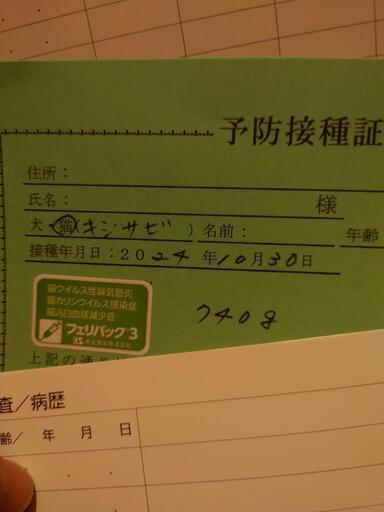 予防接種証
住所：
氏名： 様
犬 猫(キジサビ ) 名前： 年齢
接種年月日：2024年10月30日
猫ウイルス性鼻気管炎
猫カリシウイルス感染症
猫汎白血球減少症
フェリバック3
KS 共立製薬株式会社
740g
上記の通り
査／病歴
齢／ 年 月 日